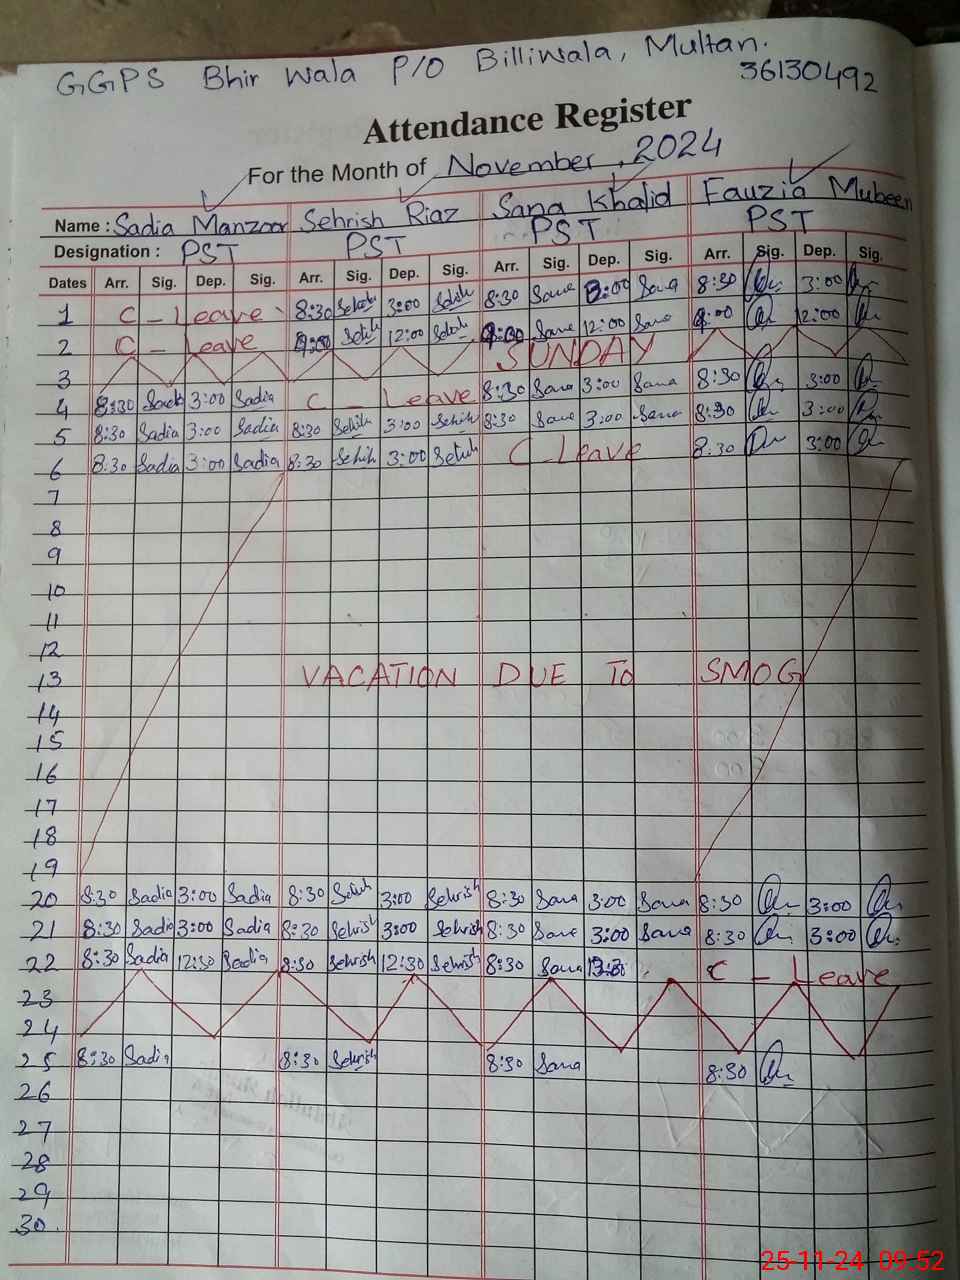 GGPS Bhir Wala P/O Billiwala, Multan.
36130492
Attendance Register
For the Month of November, 2024
Name : Sadia Manzoor Sehrish Riaz Sana Khalid Fauzia Mubeen
Designation : PST PST PST PST
Dates Arr. Sig. Dep. Sig. Arr. Sig. Dep. Sig. Arr. Sig. Dep. Sig. Arr. Sig. Dep. Sig.
1 C - Leave 8:30 3:00 8:30 Sana 3:00 Sana 8:30 3:00
2 C - Leave 12:00 Sana 12:00 Sana 12:00
3 SUNDAY
4 8:30 3:00 Sadia C - Leave 8:30 Sana 3:00 Sana 8:30 3:00
5 8:30 Sadia 3:00 Sadia 8:30 3:00 8:30 Sana 3:00 Sana 8:30 3:00
6 8:30 Sadia 3:00 Sadia 8:30 3:00 C Leave 8:30 3:00
7
8
9
10
11
12
13 VACATION DUE TO SMOG
14
15
16
17
18
19
20 8:30 Sadia 3:00 Sadia 8:30 3:00 Sehrish 8:30 Sana 3:00 Sana 8:30 3:00
21 8:30 Sadia 3:00 Sadia 8:30 Sehrish 3:00 Sehrish 8:30 Sana 3:00 Sana 8:30 3:00
22 8:30 Sadia 12:30 Sadia 8:30 Sehrish 12:30 Sehrish 8:30 Sana C - Leave
23
24
25 8:30 Sadia 8:30 Sehrish 8:30 Sana 8:30
26
27
28
29
30.
25-11-24 09:52